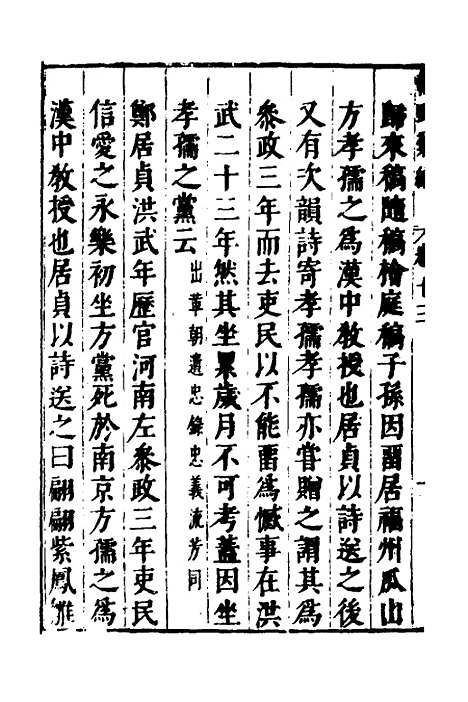 歸來稿隨稿檜庭稿子孫因畱居福州瓜山
方孝孺之為漢中教授也居貞以詩送之後
又有次韻詩寄孝孺孝孺亦嘗贈之謂其為
叅政三年而去吏民以不能畱為憾事在洪
武二十三年然其坐累歲月不可考蓋因坐
孝孺之黨云出革朝遺忠錄忠義流芳同
鄭居貞洪武年歷官河南左叅政三年吏民
信愛之永樂初坐方黨死於南京方孺之為
漢中教授也居貞以詩送之曰翩翩紫鳳雛